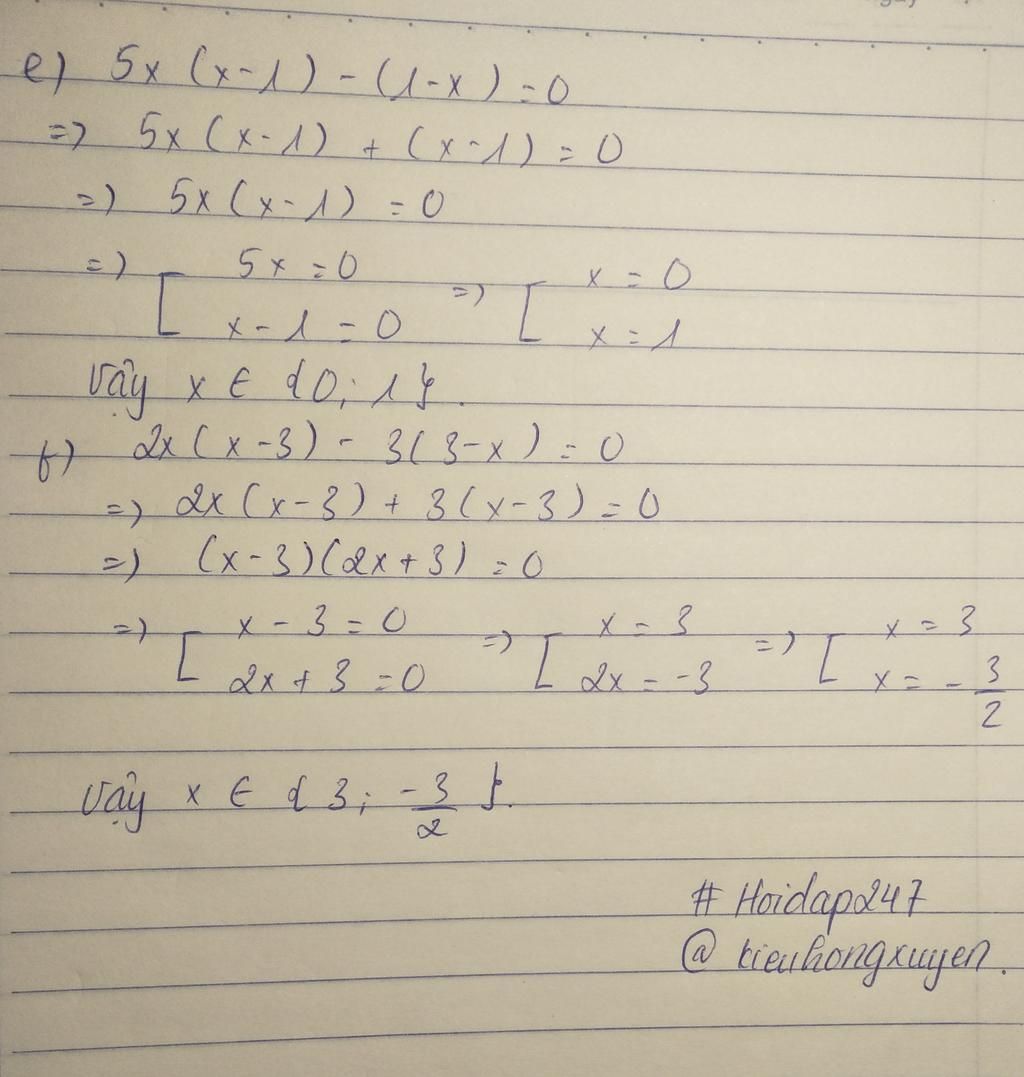 e) 5x (x-1) - (1-x) = 0
=> 5x (x-1) + (x-1) = 0
=> 5x (x-1) = 0
=> [ 5x = 0 => [ x = 0
x - 1 = 0 x = 1
Vậy x ∈ {0; 1}.
f) 2x (x-3) - 3(3-x) = 0
=> 2x (x-3) + 3(x-3) = 0
=> (x-3)(2x+3) = 0
=> [ x - 3 = 0 => [ x = 3 => [ x = 3
2x + 3 = 0 2x = -3 x = -3/2
Vậy x ∈ {3; -3/2}.
# Hoidap247
@ kieuhongxuyen.